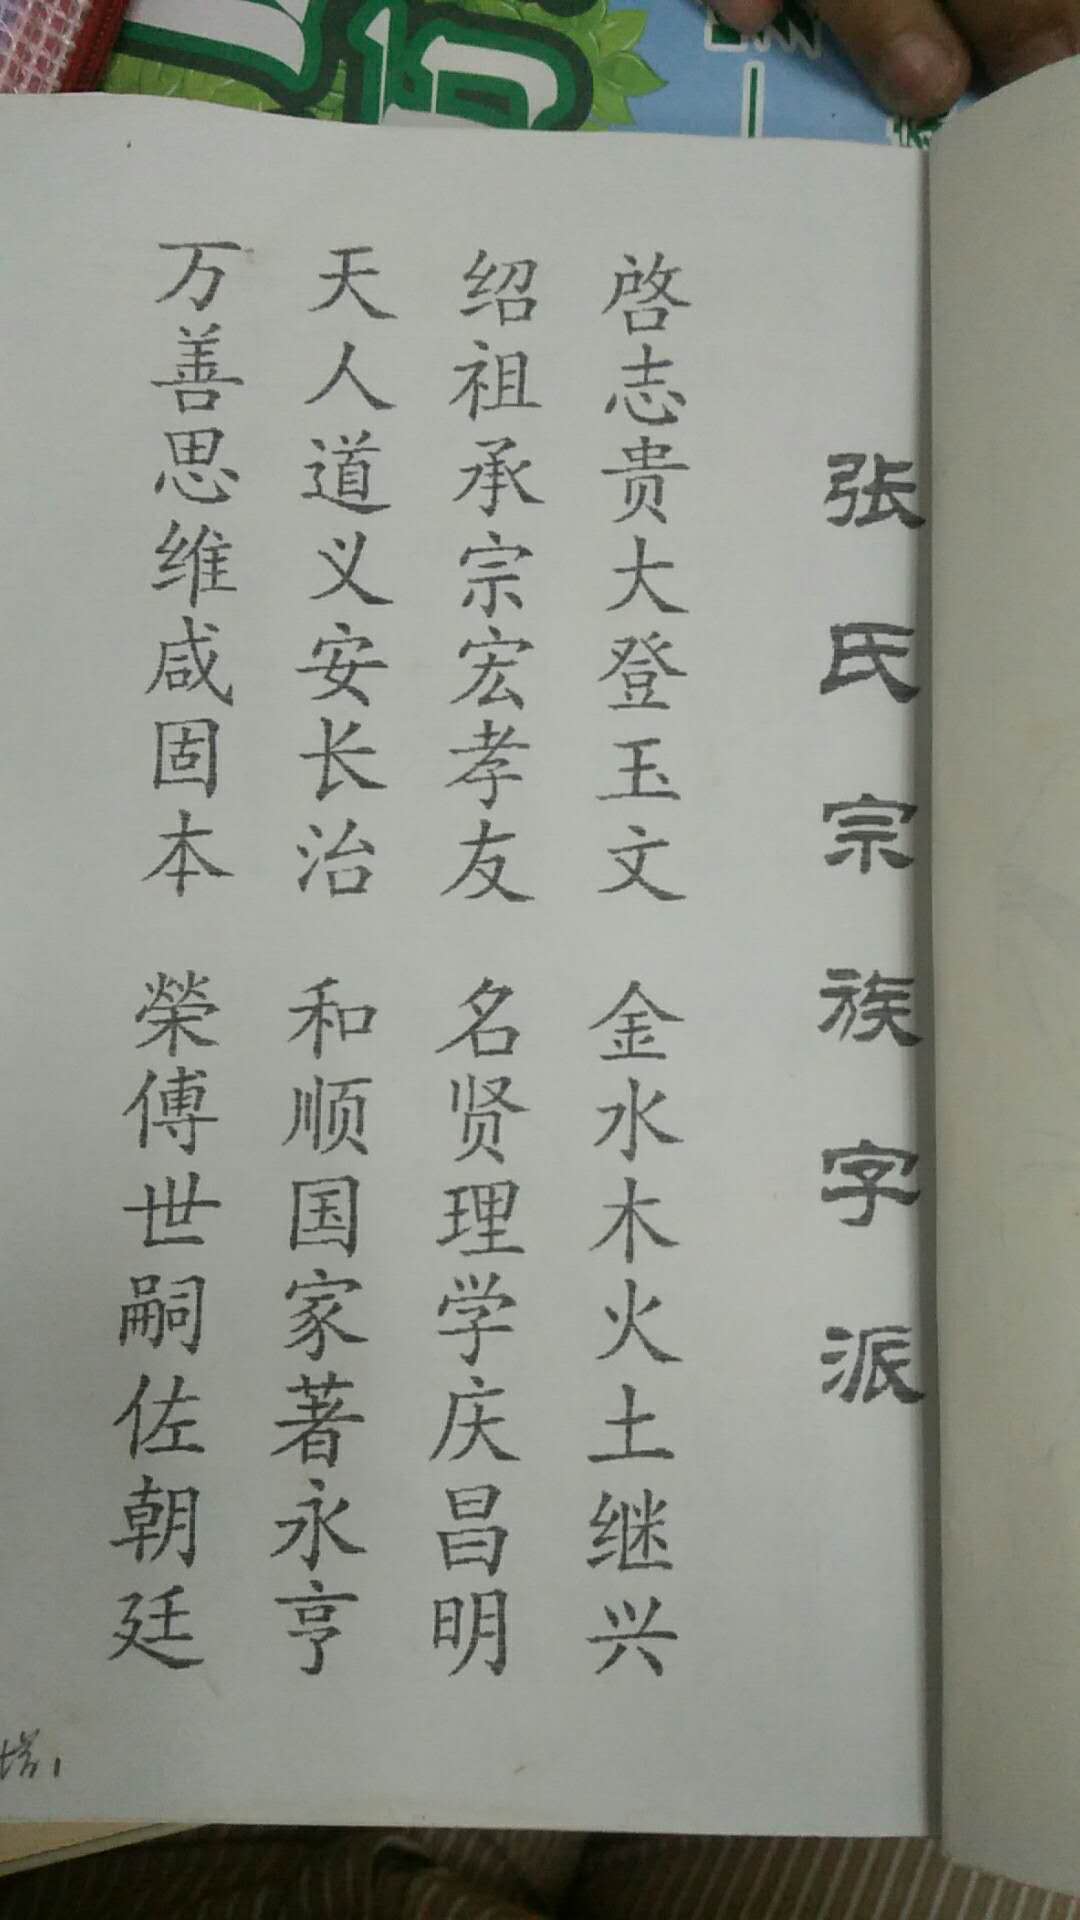 张氏宗族字派
啓志贵大登玉文 金水木火土继兴
绍祖承宗宏孝友 名贤理学庆昌明
天人道义安长治 和顺国家著永亨
万善思维咸固本 榮傅世嗣佐朝廷